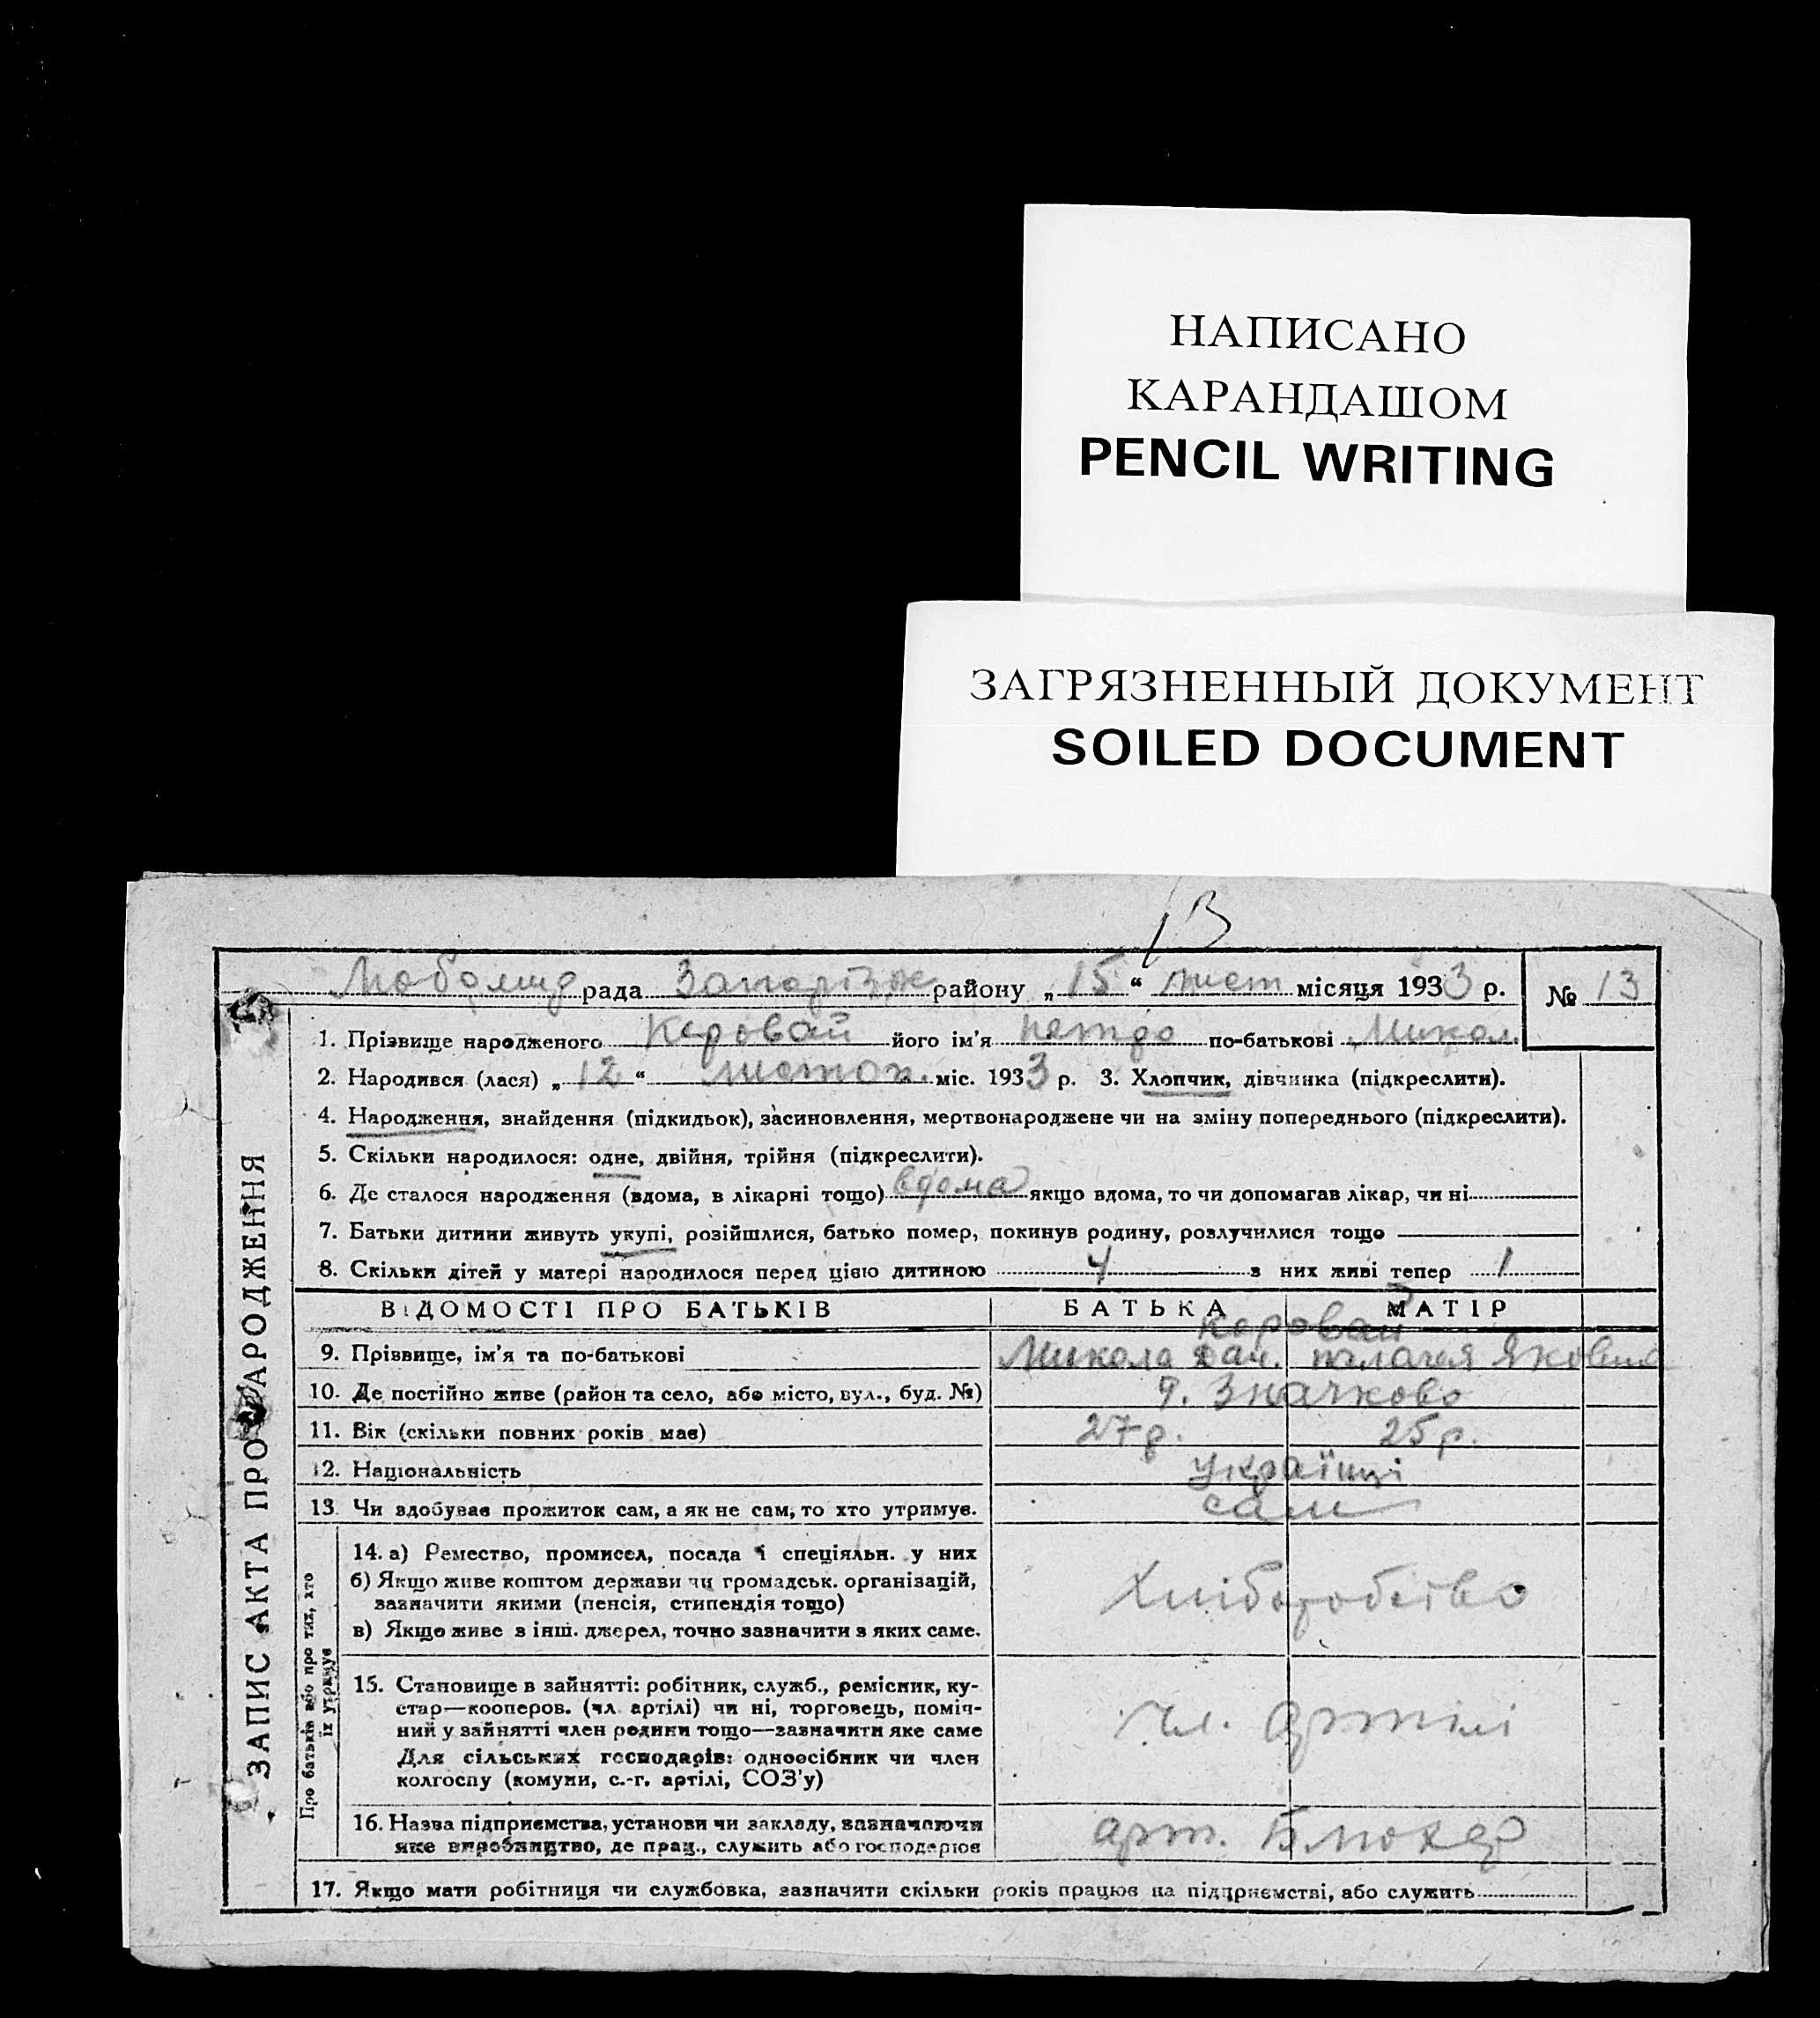 НАПИСАНО
КАРАНДАШОМ
PENCIL WRITING
ЗАГРЯЗНЕННЫЙ ДОКУМЕНТ
SOILED DOCUMENT
13
рада Запоріж району „ 15 “ лист місяця 1933 р. № 13
1. Прізвище народженого Коровай його ім'я Петро по-батькові Микол.
2. Народився (лася) „ 12 “ листоп. міс. 1933 р. 3. Хлопчик, дівчинка (підкреслити).
4. Народження, знайдення (підкидьок), засиновлення, мертвонароджене чи на зміну попереднього (підкреслити).
5. Скільки народилося: одне, двійня, трійня (підкреслити).
6. Де сталося народження (вдома, в лікарні тощо) вдома якщо вдома, то чи допомагав лікар, чи ні
7. Батьки дитини живуть укупі, розійшлися, батько помер, покинув родину, розлучилися тощо
8. Скільки дітей у матері народилося перед цією дитиною 4 з них живі тепер 1
ЗАПИС АКТА ПРО НАРОДЖЕННЯ
ВІДОМОСТІ ПРО БАТЬКІВ БАТЬКА МАТІР
Коровай
9. Прізвище, ім'я та по-батькові Микола Дан. Палагея Яковна
10. Де постійно живе (район та село, або місто, вул., буд. №) Значково
11. Вік (скільки повних років має) 27 р. 25 р.
12. Національність українці
13. Чи здобуває прожиток сам, а як не сам, то хто утримує. сами
Про батьків або про тих, хто
їх утримує
14. а) Ремество, промисел, посада і спеціяльн. у них
б) Якщо живе коштом держави чи громадськ. організацій,
зазначити якими (пенсія, стипендія тощо)
Хліборобство
в) Якщо живе з інш. джерел, точно зазначити з яких саме.
15. Становище в зайнятті: робітник, служб., ремісник, ку-
стар—кооперов. (чл. артілі) чи ні, торговець, поміч-
ний у зайнятті член родини тощо—зазначити яке саме
чл. артілі
Для сільських господарів: одноосібник чи член
колгоспу (комуни, с.-г. артілі, СОЗ'у)
16. Назва підприємства, установи чи закладу, зазначаючи
яке виробництво, де прац., служить або господарює
арт. Блюхер
17. Якщо мати робітниця чи службовка, зазначити скільки років працює на підприємстві, або служить